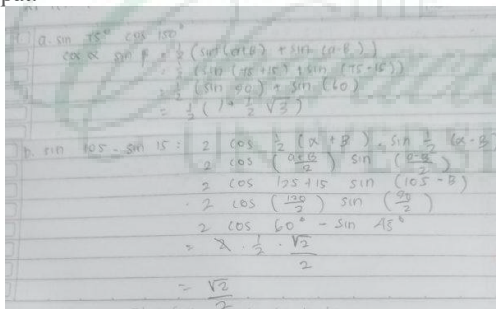 a. sin 75° cos 150°
cos α sin β = ½ (sin (α+B) + sin (a-B))
= ½ (sin (75+15) + sin (75-15))
= ½ (sin 90) + sin (60)
= ½ (1 + ½ √3)
b. sin 105 - sin 15 : 2 cos ½ (α + B) . sin ½ (α - B)
2 cos (a+B/2) sin (a-B/2)
2 cos 125+15 sin (105 - B)
2 cos (120/2) sin (90/2)
2 cos 60° - sin 45°
= 2 . ½ . √2/2
= √2/2